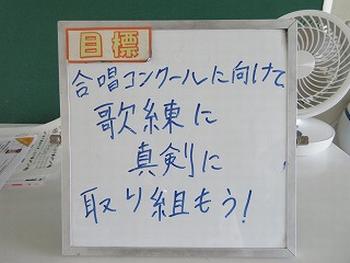 目標
合唱コンクールに向けて
歌練に
真剣に
取り組もう!